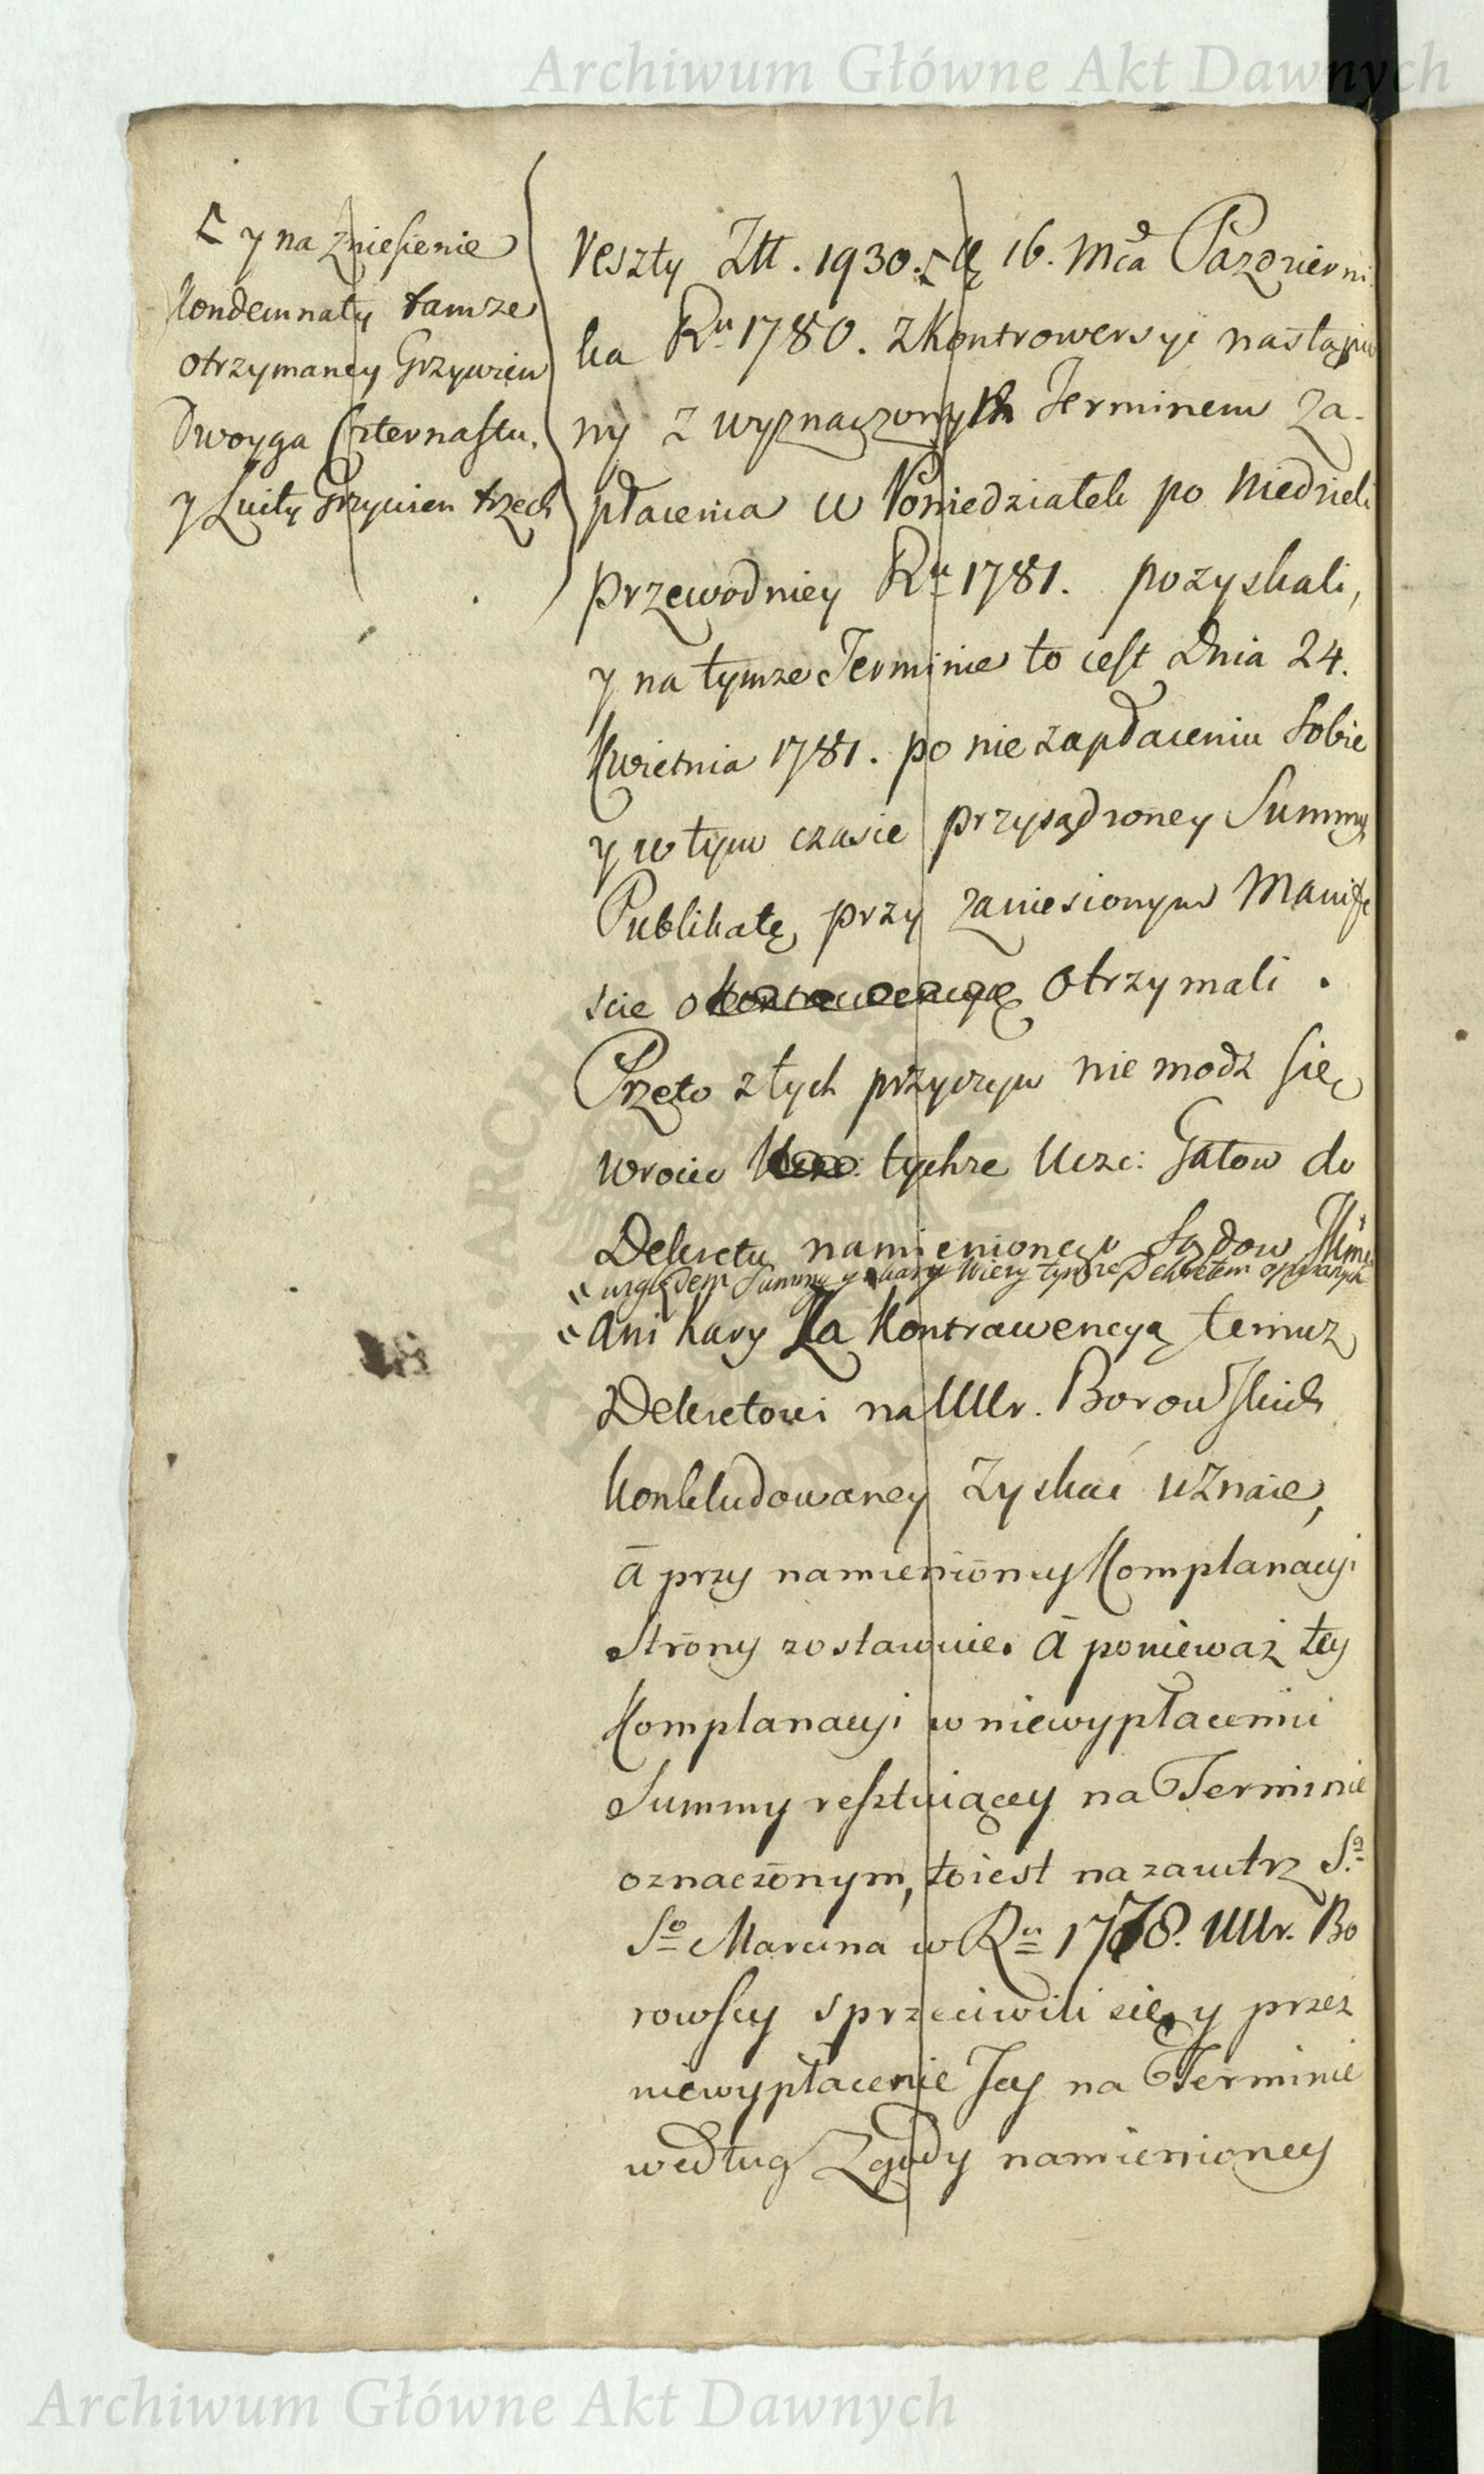 Archiwum Główne Akt Dawnych
y na zniesienie
Kondemnaty tamże
otrzymaney Grzywien
Dwoyga Czternastu.
y Luity Grzywien trzech
Reszty Złł. 1930. 16. Mca Pazdzierni
ka Ru 1780. z Kontrowersyi nastąpio
ny z wyznaczonym Terminem za-
płacenia w Poniedziałek po Niedzieli
przewodniey Ru 1781. pozyskali,
y na tymże Terminie to iest Dnia 24.
Kwietnia 1781. po niezapłaceniu Sobie
y w tym czasie przysądzoney Summy
Publikatę przy zaniesionym Manife
scie o kontrawencyą otrzymali.
Przeto z tych przyczyn nie módz się
wrocić tychże Ucz: Gatow do
Dekretu namienionego Sądow
względem Summy y kary Wieży tymże Dekretem opisanych
ani kary Za Kontrawencyą temuż
Dekretowi na UUr. Borowskich
konkludowaney zyskać uznaie,
á przy namienioney Komplanacyi
Strony zostawuie. á ponieważ tey
Komplanacyi w niewypłaceniu
Summy resztuiącey na Terminie
oznaczonym, to iest nazawtrz S.o
So Marcina w Ru 1778. UUr. Bo
rowscy sprzeciwili się, y przez
niewypłacenie Jey na Terminie
według Zgody namienioney
Archiwum Główne Akt Dawnych